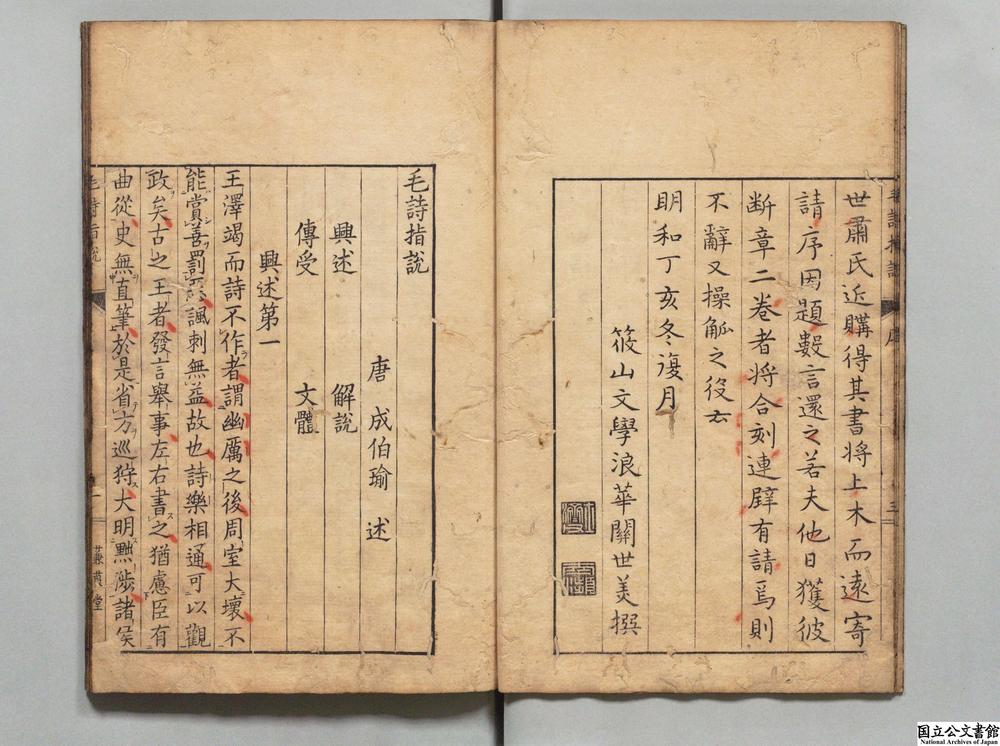 世肅氏近購得其書將上木而遠寄
請序因題數言還之若夫他日獲彼
斷章二卷者將合刻連璧有請焉則
不辭又操觚之役云
明和丁亥冬復月
筱山文學浪華關世美撰
毛詩指說
唐 成伯瑜 述
興述 解說
傳受 文體
興述第一
王澤竭而詩不作者謂幽厲之後周室大壞不
能賞善罰惡諷刺無益故也詩樂相通可以觀
政矣古之王者發言舉事左右書之猶慮臣有
曲從史無直筆於是省方巡狩大明黜陟諸侯
毛詩指說
一
蒹葭堂
国立公文書館
National Archives of Japan